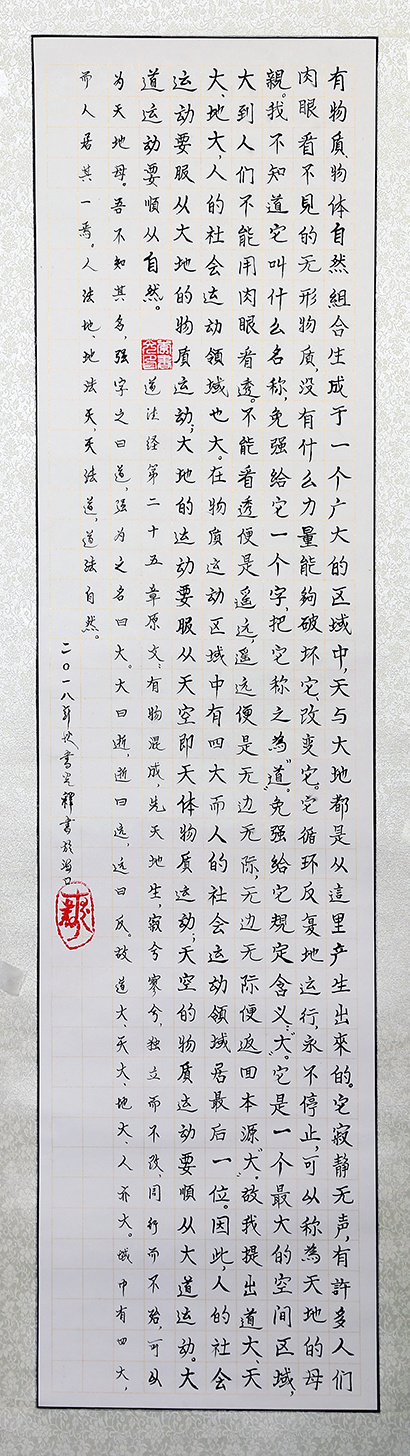 有物质、物体自然組合生成于一个广大的区域中,天与大地都是从這里产生出來的。它寂静无声,有許多人们
肉眼看不見的无形物质,没有什么力量能夠破坏它、改变它。它循环反复地运行,永不停止,可以称為天地的母
親。我不知道它叫什么名称,免强给它一个字,把它称之為"道"。免强给它規定含义:"大"。它是一个最大的空间区域,
大到人们不能用肉眼看透。不能看透便是遥远,遥远便是无边无际,无边无际便返回本源"大"。故我提出道大、天
大、地大,人的社会运动領域也大。在物质运动区域中有四大而人的社会运动領域居最后一位。因此,人的社会
运动要服从大地的物质运动;大地的运动要服从天空即天体物质运动;天空的物质运动要順从大道运动。大
道运动要順从自然。 道法经第二十五章原文:有物混成,先天地生,寂兮寥兮,独立而不改,周行而不殆,可以
为天地母。吾不知其名,强字之曰道,强为之名曰大。大曰逝,逝曰远,远曰反。故道大、天大、地大、人亦大。域中有四大,
而人居其一焉。人法地、地法天、天法道,道法自然。
二〇一八年 書於海口